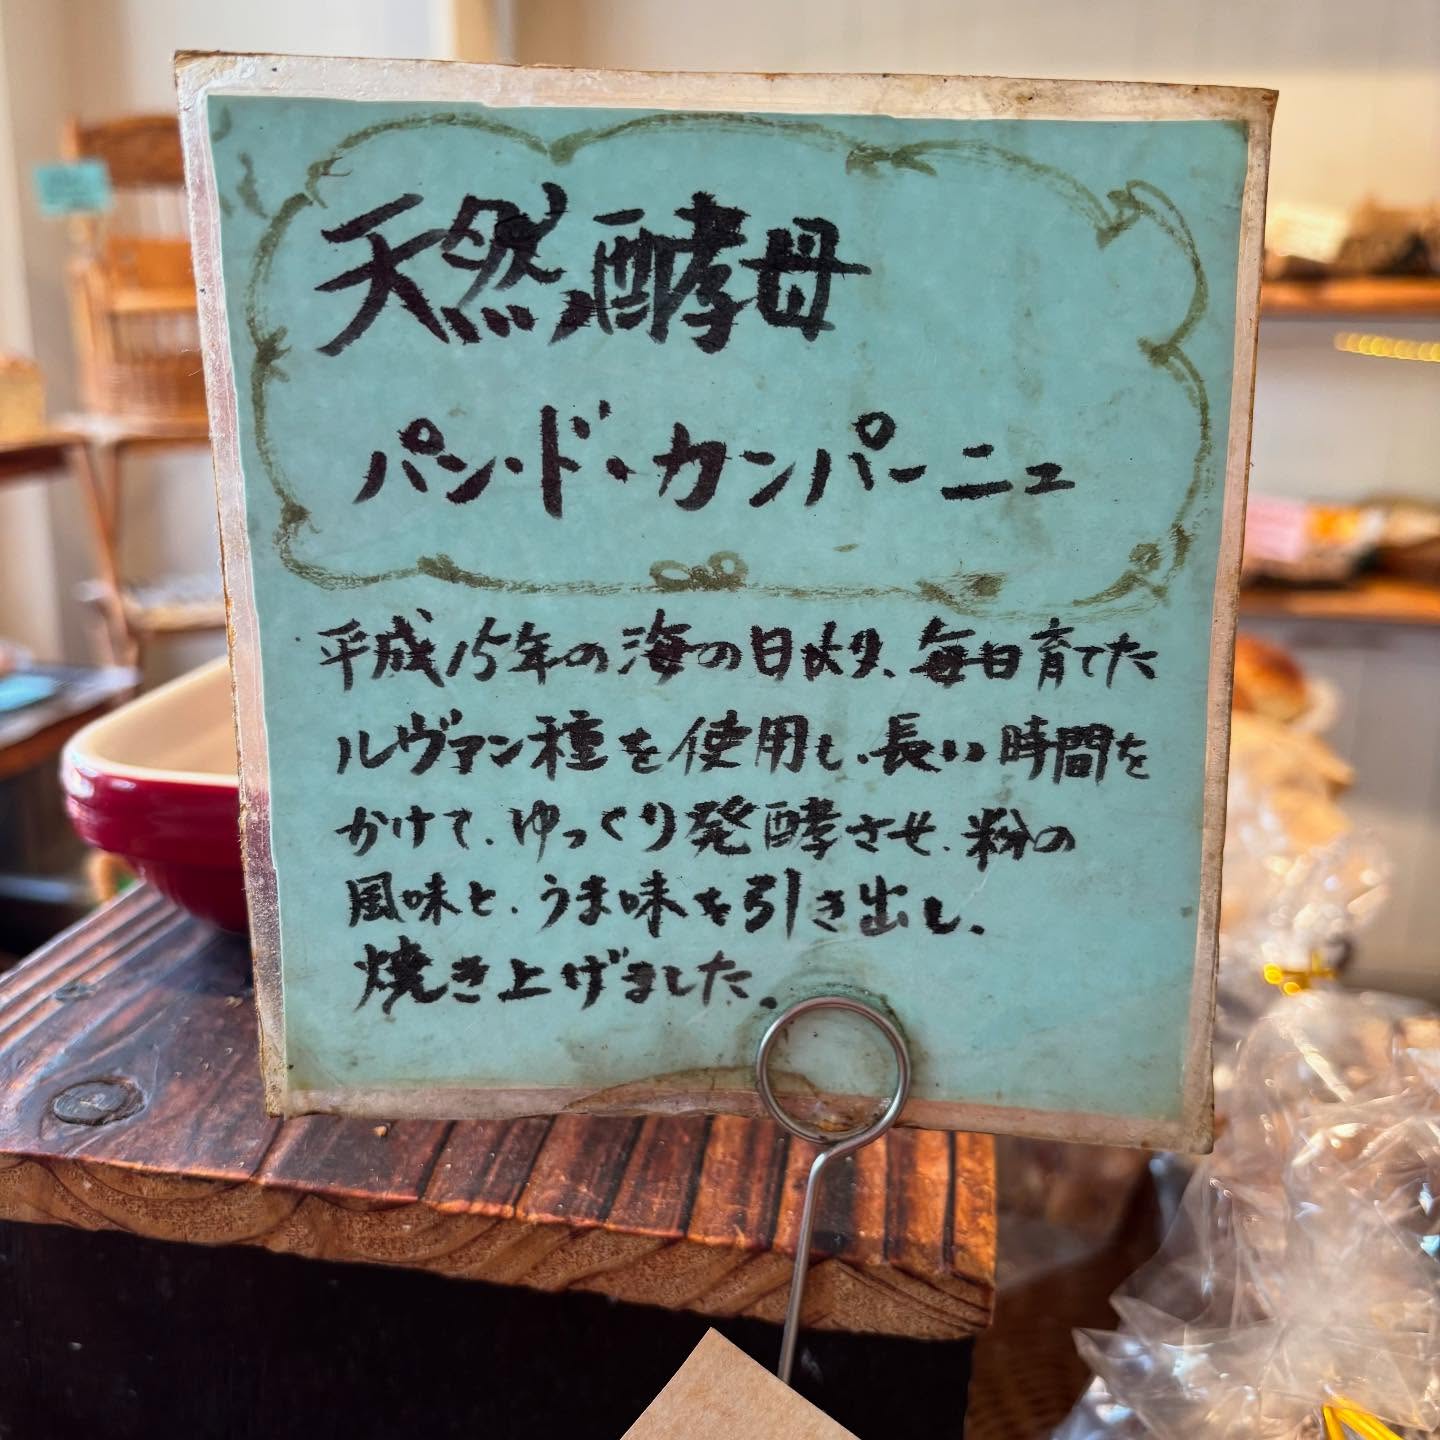 天然酵母
パン・ド・カンパーニュ
平成15年の海の日より、毎日育てた
ルヴァン種を使用し、長い時間を
かけて、ゆっくり発酵させ、粉の
風味と、うま味を引き出し、
焼き上げました。